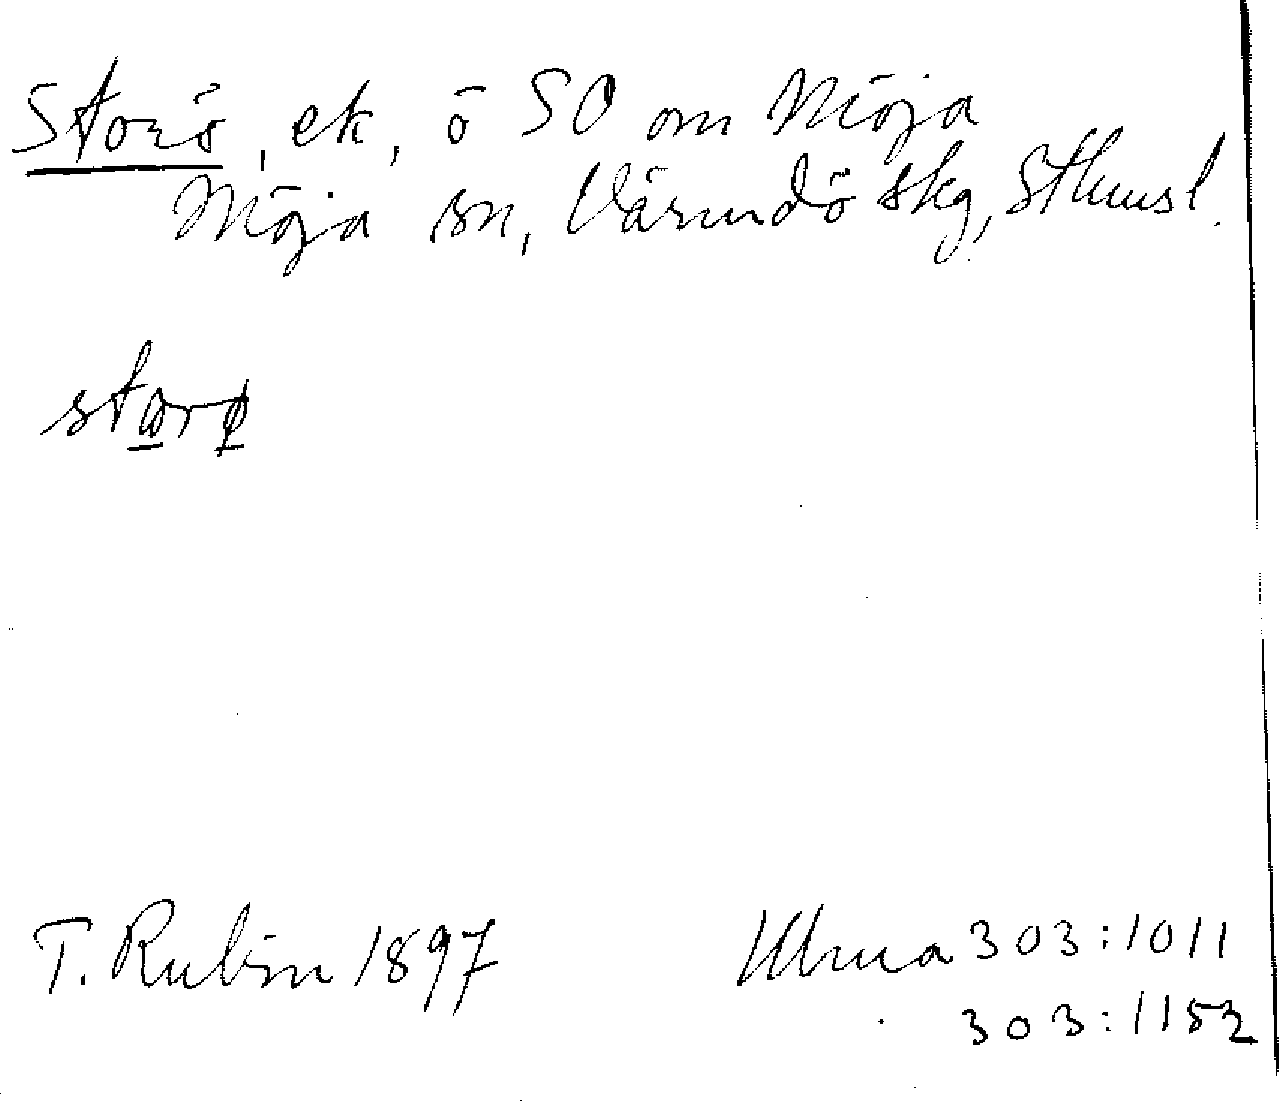 Storö, ek, ö SO om Möja
Möja sn, Värmdö skg, Sthmsl.
T. Rubin 1897
Ulma 303:1011
303:1152